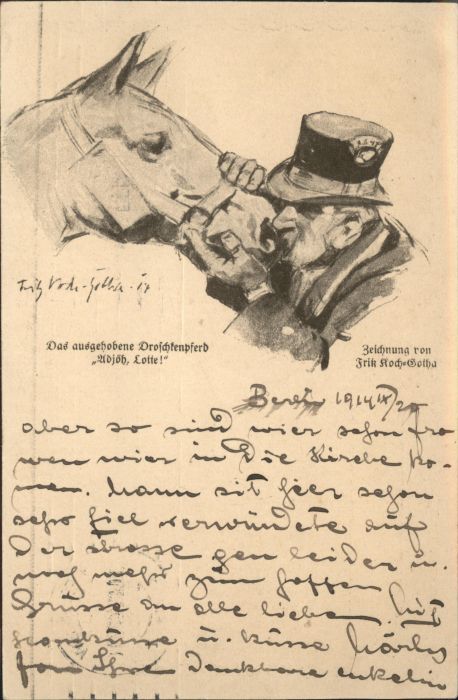 Fritz Koch-Gotha. 14
Das ausgehobene Droschkenpferd
„Adjöh, Lotte!“
Zeichnung von
Fritz Koch=Gotha
Berlin 1914 IX/
aber so sind wier schon fro
wen wier in Die Kirche ko-
men. Mann sit hier schon
sehr fiel verwundete auf
Der strasse gen leider u.
noch mehr zum hoffen
Grüsse an alle lieben. Mit
u. Küsse
fon Ihre Dankbare enkelin